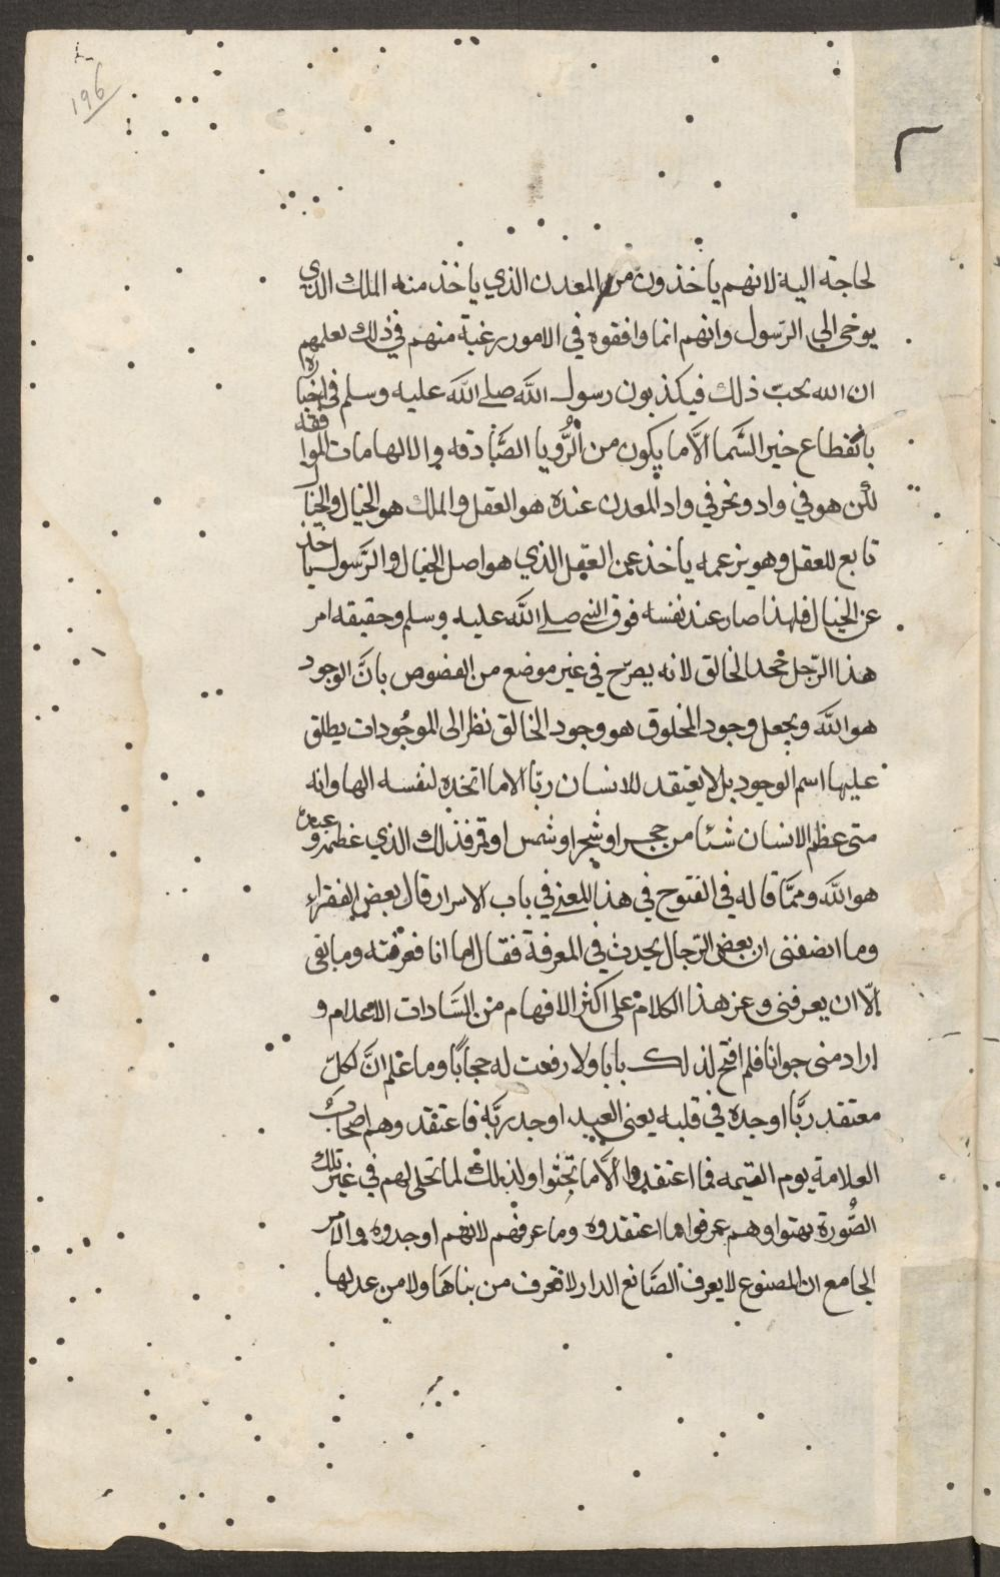 196
٢
لحاجة اليه لانهم ياخذون من المعدن الذي ياخذ منه الملك الذي
يوحى الى الرّسول وانهم انما وافقوه في الامور رغبة منهم في ذلك لعلمهم
ان الله يحبّ ذلك فيكذبون رسول الله صلى الله عليه وسلم في اخباره
بانقطاع خبر السَّما الَّا ما يكون من الرُّويا الصَّادقه والالهامات الموافقه
لكن هو في واد ونحن في واد المعدن عنده هو العقل والملك هو الخيال والخيال
تابع للعقل وهو بزعمه ياخذ عن العقل الذي هو اصل الخيال والرَّسول ياخذ
عن الخيال فلهذا صار عند نفسه فوق النبي صلى الله عليه وسلم وحقيقه امر
هذا الرّجل جحد الخالق لانه يصرّح في غير موضع من الفصوص بانَّ الوجود
هو الله ويجعل وجود المخلوق هو وجود الخالق نظر الى الموجُودات يطلق
عليها اسم الوجود بل لا يعتقد للانسان ربّا الا ما اتخذه لنفسه الها وانه
متى عظم الانسان شئا من حجر او شجر او شمس او قمر فذلك الذي عظمه وعبده
هو الله وممَّا قاله في الفتوح في هذا المعنى في باب الاسرار قال بعض الفقراء
وما انصفنى ان بعض الرّجال يحدث في المعرفة فقال اما انا فعرفته وما بقى
الّا ان يعرفنى وعز هذا الكلام على اكثر الافهام من السَّادات الاعلام و
اراد منى جوابا فلم افتح لذلك بابا ولا رفعت له حجابًا وما علم انَّ لكلّ
معتقد ربًّا اوجده في قلبه يعنى العبيد اوجد ربَّه فاعتقد وهم اصحابُ
العلامة يوم القيمه فما اعتقدوا الَّا ما نحتوا ولذلك لما تجلى لهم في غير تلك
الصُّورة بهتوا وهم عرفوا ما اعتقدوه وما عرفهم لانهم اوجدوه والامر
الجامع ان المصنوع لا يعرف الصَّانع الدار لا تعرف من بناهَا ولا من عدلها